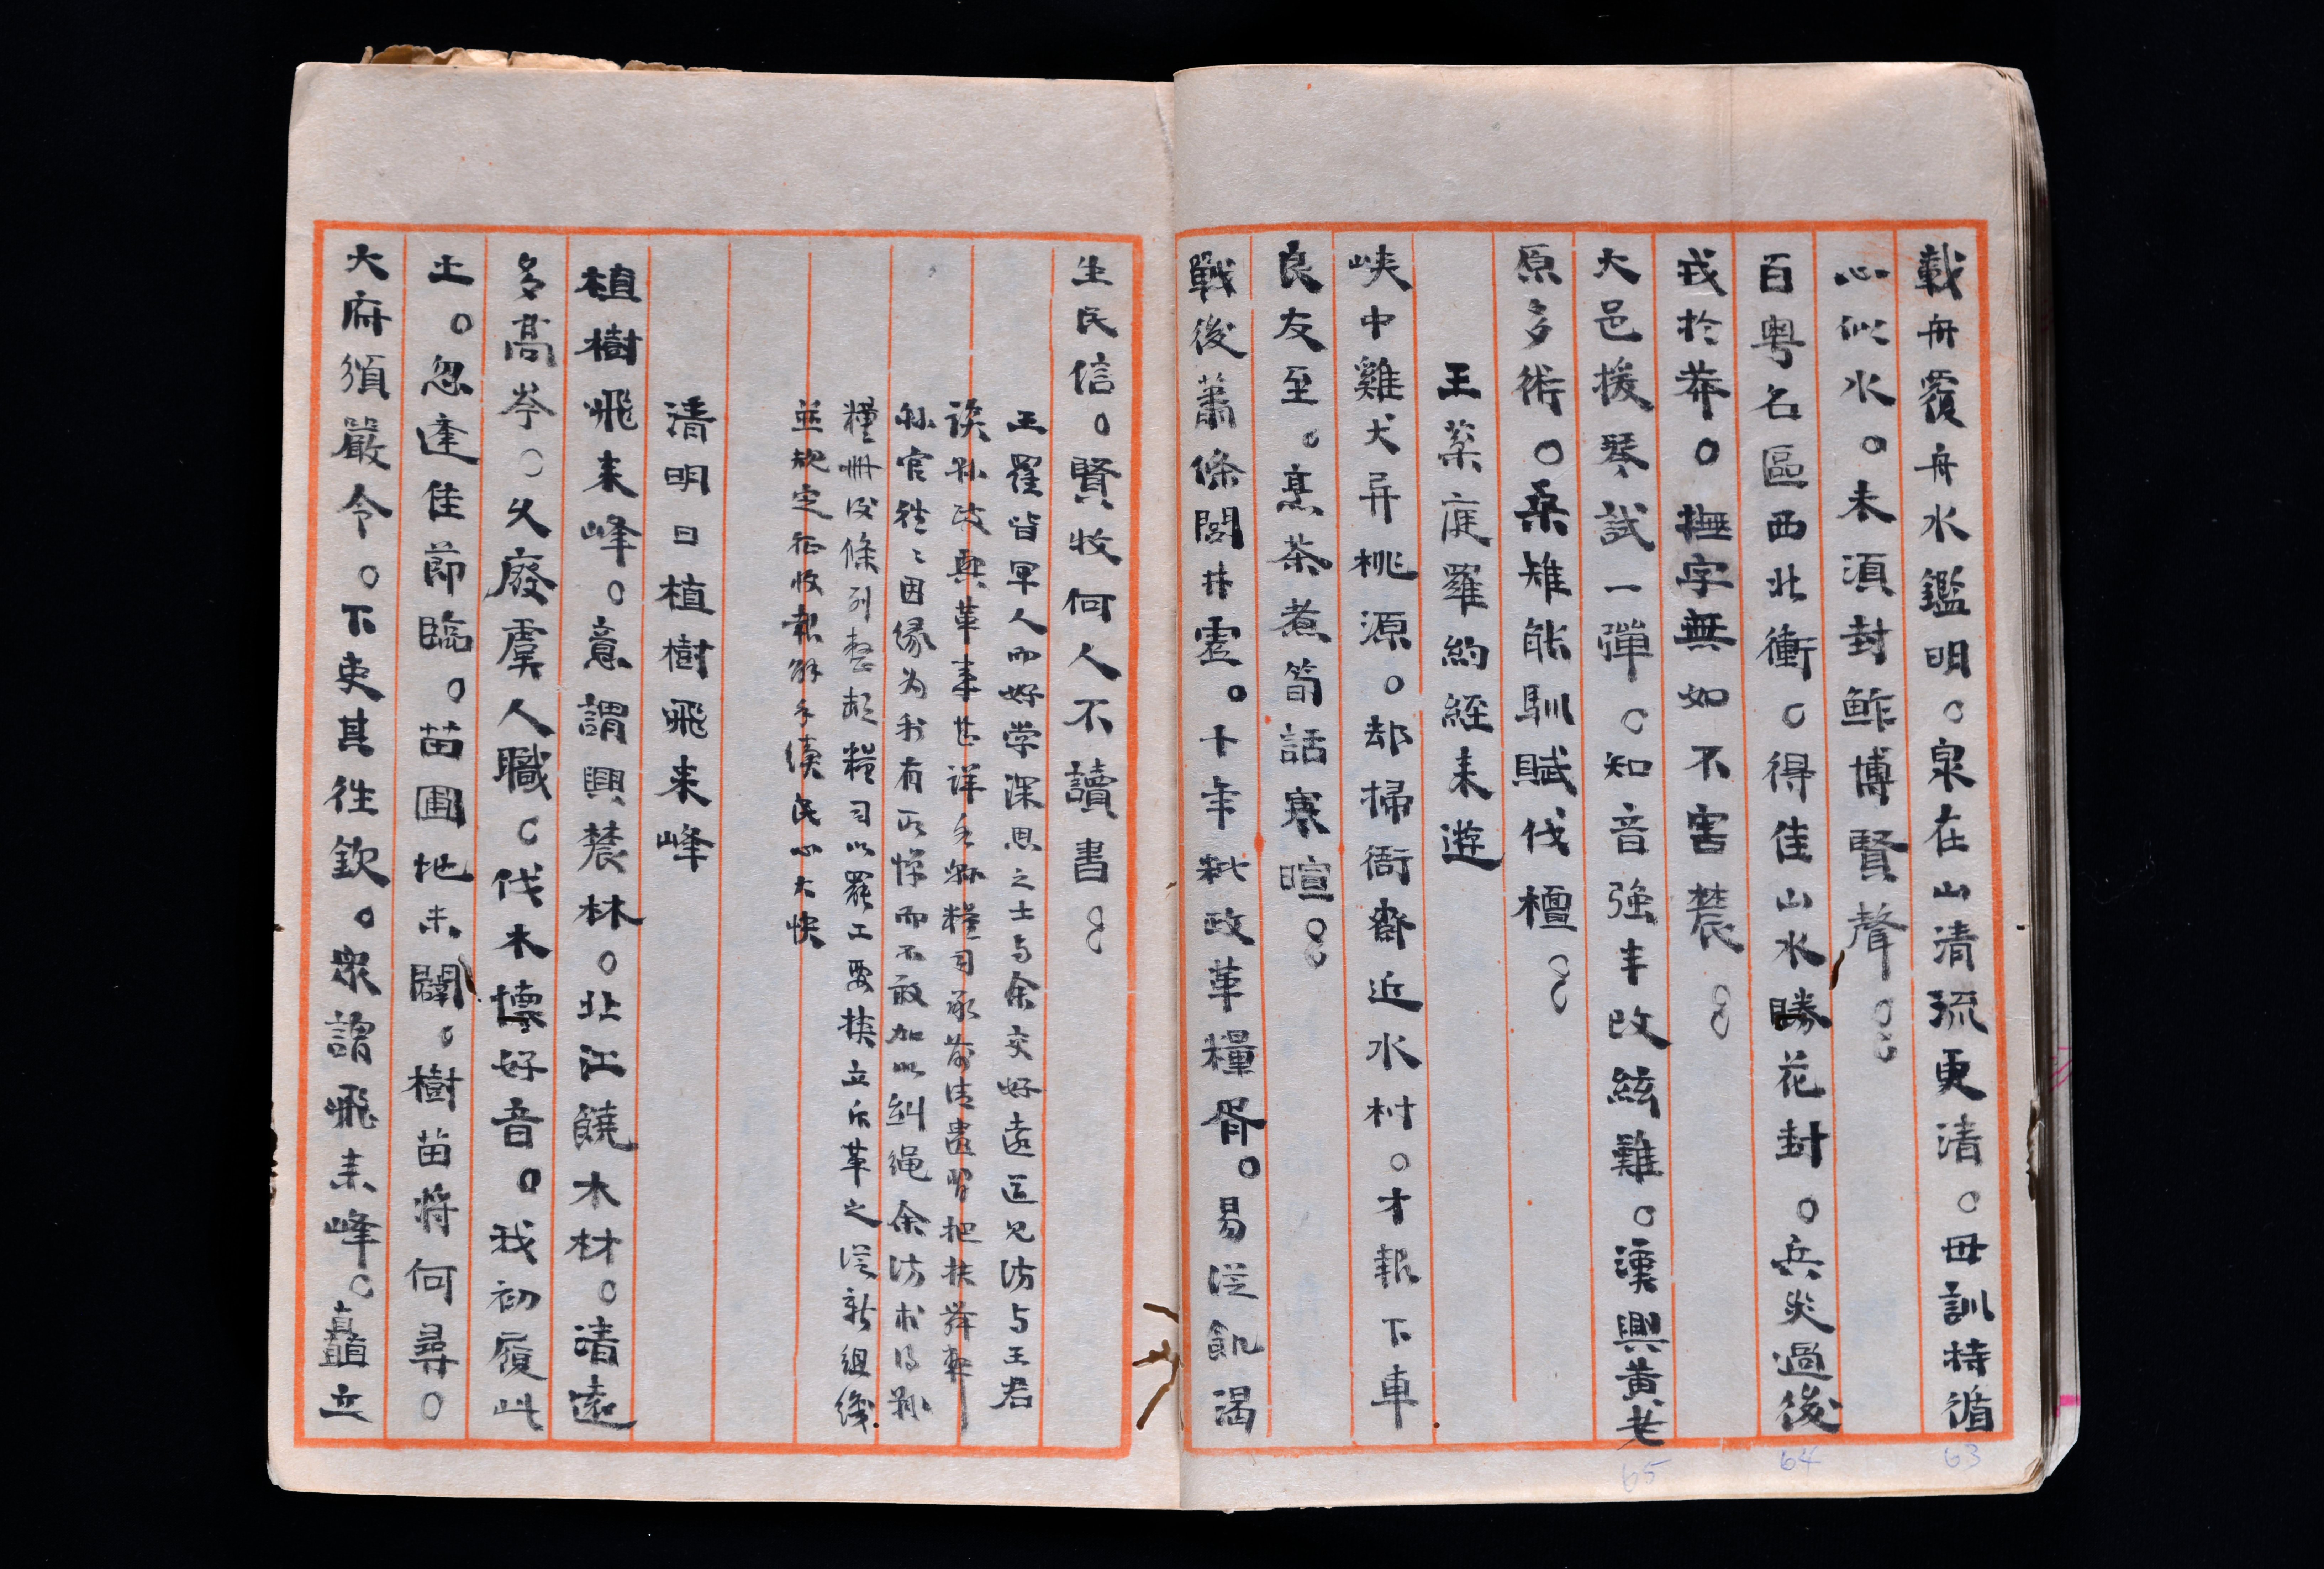 載舟覆舟水鑑明。泉在山清流更清。毋訓持循
心似水。未須封鮓博賢聲。
百粵名區西北衝。得佳山水勝花封。兵災過後
戎於莽。撫字無如不害農。
大邑援琴試一彈。知音強半改絃難。漢興黃老
原多術。桑雉能馴賦伐檀。
王棻庭羅約經來遊
峽中雞犬异桃源。却掃衙齋近水村。才報下車
良友至。烹茶煮筍話寒暄。
戰後蕭條閭井虛。十年秕政革糧胥。易從飢渴
63
64
65
生民信。賢牧何人不讀書。
王羅皆早人而好学深思之士与余交好遠道見访与王君
談縣政興革事甚详縣糧司承前清遺習把扶舞弊
縣官往々因缘为利有所惮而不敢加以糾绳余访求得縣
糧冊後條列整頓糧司以罷工要挾立斥革之從新组織
並规定征收報解手续民心大快
清明日植樹飛来峰
植樹飛来峰。意謂興農林。北江饒木材。清遠
多高岑。久廢虞人職。伐木懷好音。我初履此
土。忽逢佳節臨。苗圃地未闢。樹苗將何尋。
大府頒嚴令。下吏其往欽。眾謂飛来峰。矗立